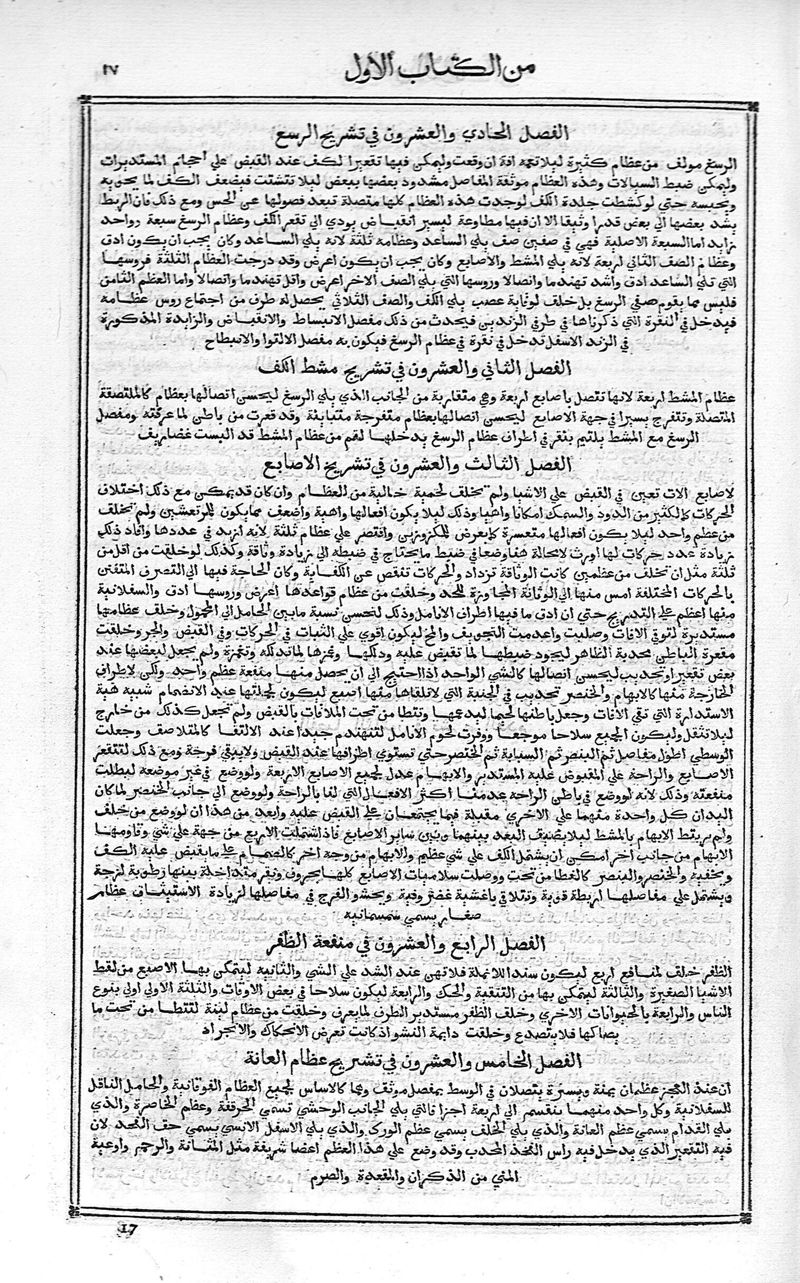 من الكتاب الاول
١٧
الفصل الحادي والعشرون في تشريح الرسغ
الرسغ مولف من عظام كثيرة ليلا تعمه افة ان وقعت وليمكن فيها تقعيرا لكف عند القبض علي احجام المستديرات
وليمكن ضبط السيالات وهذه العظام موثقة المفاصل مشدود بعضها ببعض ليلا تتشتت فيضعف الكف لما يحويه
ويحبسه حتي لو كشطت جلدة الكف لوجدت هذه العظام كلها متصلة تبعد فصولها عن الحس ومع ذلك فان الربط
يشد بعضها الي بعض شدا وثيقا الا ان فيها مطاوعة ليسير انقباض يودي الي تقعر الكف وعظام الرسغ سبعة وواحد
زايد اما السبعة الاصلية فهي في صفين صف يلي الساعد وعظامه ثلثة لانه يلي الساعد وكان يجب ان يكون ادق
وعظام الصف الثاني اربعة لانه يلي المشط والاصابع وكان يجب ان يكون اعرض وقد درجت العظام الثلثة فروسها
التي تلي الساعد ادق واشد تهندما واتصالا وروسها التي يلي الصف الاخر اعرض واقل تهندما واتصالا واما العظم الثامن
فليس مما يقوم صفي الرسغ بل خلف لوقاية عصب يلي الكف والصف الثلاثي يحصل له طرف من اجتماع روس عظامه
فيدخل في النقرة التي ذكرناها في طرفي الزندين فيحدث من ذلك مفصل الانبساط والانقباض والزايدة المذكورة
في الزند الاسفل تدخل في نقرة في عظام الرسغ فيكون به مفصل الالتوا والانبطاح
الفصل الثاني والعشرون في تشريح مشط الكف
عظام المشط اربعة لانها تتصل باصابع اربعة وهي متقاربة من الجانب الذي يلي الرسغ ليحسن اتصالها بعظام كالملتصقة
المتصلة وتتفرج يسيرا في جهة الاصابع ليحسن اتصالها بعظام متفرجة متباينة وقد قعرت من باطن لما عرفته ومفصل
الرسغ مع المشط يلتيم بنقر في اطراف عظام الرسغ يدخلها لقم من عظام المشط قد البست غضاريف
الفصل الثالث والعشرون في تشريح الاصابع
لاصابع الات تعين في القبض علي الاشيا ولم تخلف لحمية خالية من العظام وان كان قد يمكن مع ذلك اختلاف
الحركات كالكثير من الدود والسمك امكانا واهيا وذلك ليلا يكون افعالها واهية واضعف مما يكون للمرتعشين ولم تخلف
من عظم واحد ليلا يكون افعالها متعسرة كما يعرض للمكزوزين واقتصر علي عظام ثلثة لانه ان زيد في عددها وافاد ذلك
زيادة عدد حركات لها اورث لامحالة وهنا وضعفا في ضبط ما يحتاج في ضبطه الي زيادة وثاقة وكذلك لو خلقت من اقل من
ثلثة مثل ان تخلف من عظمين كانت الوثاقة تزداد والحركات تنقص عن الكفاية وكان الحاجة فيها الي التصرف المتفنن
بالحركات المختلفة امس منها الي الوثاقة المجاوزة للحد وخلقت من عظام قواعدها اعرض وروسها ادق والسفلانية
منها اعظم علي التدريج حتي ان ادق ما فيها اطراف الانامل وذلك لتحسن نسبة ما بين الحامل الي المحمول وخلف عظامها
مستديرة لتوقي الافات وصلبت واعدمت التجويف والمخ ليكون اقوي علي الثبات في الحركات وفي القبض والجر وخلقت
مقعرة الباطن محدبة الظاهر ليجود ضبطها لما تقبض عليه ودلكها وغمزها لما تدلكه وتغمزه ولم يجعل لبعضها عند
بعض تقعير او تحديب ليحسن اتصالها كالشي الواحد اذا احتيج الي ان يحصل منها منفعة عظم واحد ولكن لاطراف
الخارجة منها كالابهام والخنصر تحديب في الجنبة التي لا تلقاها منها اصبع ليكون لجملتها عند الانضمام شبيه هية
الاستدارة التي تقي الافات وجعل باطنها لحميا ليدعمها وتتطا من تحت الملاقات بالقبض ولم تجعل كذلك من خارج
ليلا تثقل وليكون الجميع سلاحا موجعا ووفرت لحوم الانامل لتتهندم جيدا عند الالتقا كالمتلاصق وجعلت
الوسطي اطول مفاصل ثم البنصر ثم السبابة ثم الخنصر حتي تستوي اطرافها عند القبض ولا يبقي فرجة ومع ذلك لتتقعر
الاصابع والراحة علي المقبوض عليه المستدير والابهام عدل لجميع الاصابع الاربعة ولو وضع في غير موضعه لبطلت
منفعته وذلك لانه لو وضع في باطن الراحة عدمنا اكثر الافعال التي لنا بالراحة ولو وضع الي جانب الخنصر لما كان
اليدان كل واحدة منهما علي الاخري مقبلة فيما يجتمعان علي القبض عليه وابعد من هذا ان لو وضع من خلف
ولم يربط الابهام بالمشط ليلا يضيق البعد بينهما وبين ساير الاصابع فاذا اشتملت الاربع من جهة علي شي وقاومها
الابهام من جانب اخر امكن ان يشتمل الكف علي شي عظيم والابهام من وجه اخر كالصمام علي ما يقبض عليه الكف
ويخفيه والخنصر والبنصر كالغطا من تحت ووصلت سلاميات الاصابع كلها بحروف ونقر متداخلة بينها رطوبة لزجة
ويشتمل علي مفاصلها اربطة قوية وتتلاقي باغشية غضروفية ويحشو الفرج في مفاصلها لزيادة الاستيثاق عظام
صغار يسمي سمسمانيه
الفصل الرابع والعشرون في منفعة الظفر
الظفر خلف لمنافع اربع ليكون سندا للانملة فلا تهن عند الشد علي الشي والثانيه ليتمكن بها الاصبع من لقط
الاشيا الصغيرة والثالثة ليتمكن بها من التنقية والحك والرابعة ليكون سلاحا في بعض الاوقات والثلثة الاولي اولي بنوع
الناس والرابعة بالحيوانات الاخري وخلف الظفر مستدير الطرف لما يعرف وخلقت من عظام لينة لتتطا من تحت ما
يصاكها فلا يتصدع وخلقت دايمة النشو اذ كانت تعرض الانحكاك والانجراد
الفصل الخامس والعشرون في تشريح عظام العانة
ان عند العجز عظمان يمنة ويسرة يتصلان في الوسط بمفصل موثف وهما كالاساس لجميع العظام الفوقانية والحامل الناقل
للسفلانية وكل واحد منهما ينقسم الي اربعة اجزا فالتي يلي الجانب الوحشي تسمي الحرقفة وعظم الخاصرة والذي
يلي القدام يسمي عظم العانة والذي يلي الخلف يسمي عظم الورك والذي يلي الاسفل الانسي يسمي حف الفخذ لان
فيه التقعير الذي يدخل فيه راس الفخذ المحدب وقد وضع علي هذا العظم اعضا شريفة مثل المثانة والرحم واوعية
المني من الذكران والمقعدة والصرم
17